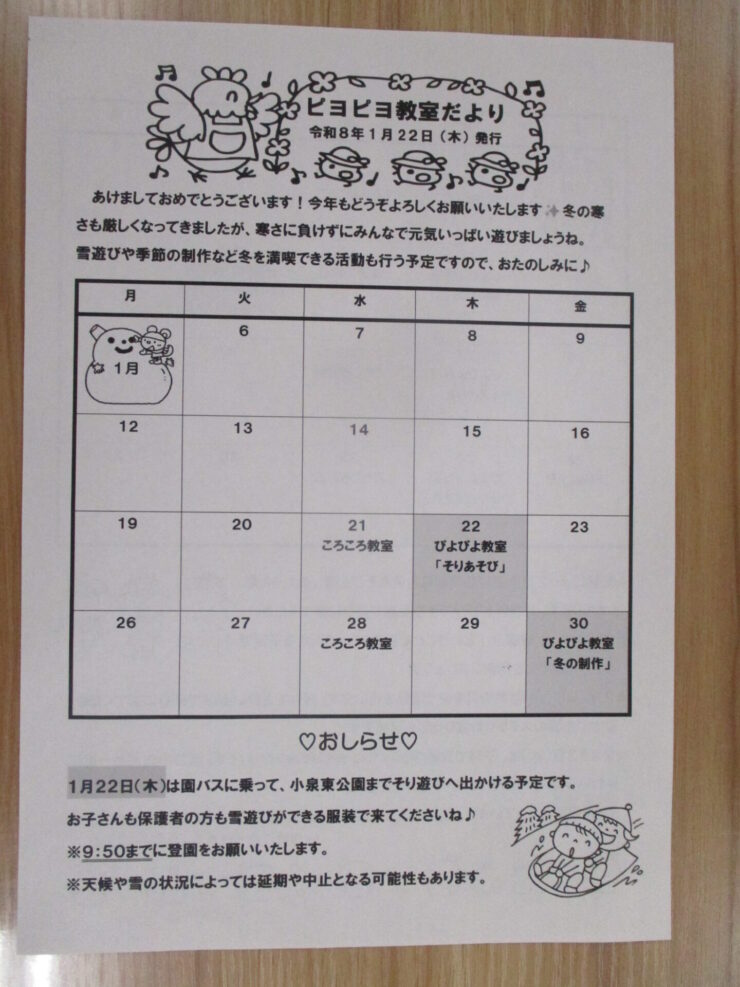 ピヨピヨ教室だより
令和8年1月22日（木）発行
あけましておめでとうございます！今年もどうぞよろしくお願いいたします✨冬の寒
さも厳しくなってきましたが、寒さに負けずにみんなで元気いっぱい遊びましょうね。
雪遊びや季節の制作など冬を満喫できる活動も行う予定ですので、おたのしみに♪
月 火 水 木 金
1月 6 7 8 9
12 13 14 15 16
19 20 21 22 23
ころころ教室 ぴよぴよ教室
「そりあそび」
26 27 28 29 30
ころころ教室 ぴよぴよ教室
「冬の制作」
♡おしらせ♡
1月22日(木)は園バスに乗って、小泉東公園までそり遊びへ出かける予定です。
お子さんも保護者の方も雪遊びができる服装で来てくださいね♪
※9:50までに登園をお願いいたします。
※天候や雪の状況によっては延期や中止となる可能性もあります。